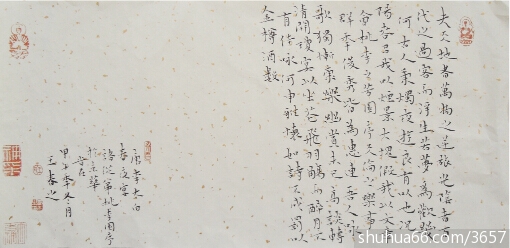 夫天地者萬物之逆旅光陰者百
代之過客而浮生若夢為歡幾
何古人秉燭夜遊良有以也況
陽春召我以煙景大塊假我以文章
會桃李之芳園序天倫之樂事
群季俊秀皆為惠連吾人詠
歌獨慚康樂幽賞未已高談轉
清開瓊筵以坐花飛羽觴而醉月不
有佳詠何申雅懷如詩不成罰以
金樽酒數
唐李太白
春夜宴
諸從弟桃李園序
於京華
甲午年冬月
shuhua66.com/3657